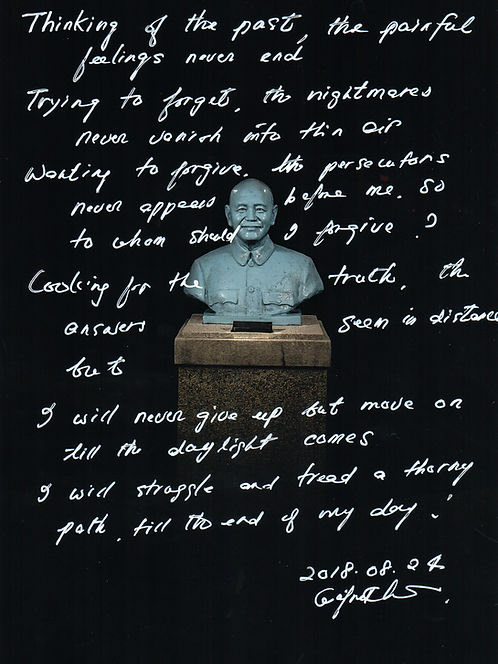 Thinking of the past, the painful
feelings never end
Trying to forget, the nightmares
never vanish into thin air
Wanting to forgive, the persecutors
never appears before me. So
to whom should I forgive?
Looking for the truth, the
answers seem in distance
but
I will never give up but move on
till the daylight comes
I will struggle and tread a thorny
path, till the end of my day!
2018.08.24